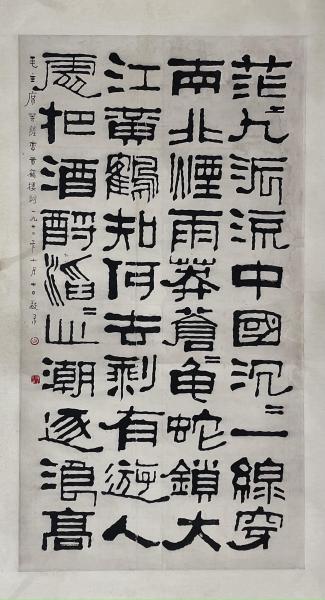 茫〻九派流中國沉〻一線穿
南北煙雨莽蒼〻龜蛇鎖大
江黃鶴知何去剩有遊人
處把酒酹滔〻心潮逐浪高
毛主席菩薩蠻黃鶴樓詞一九七年十月